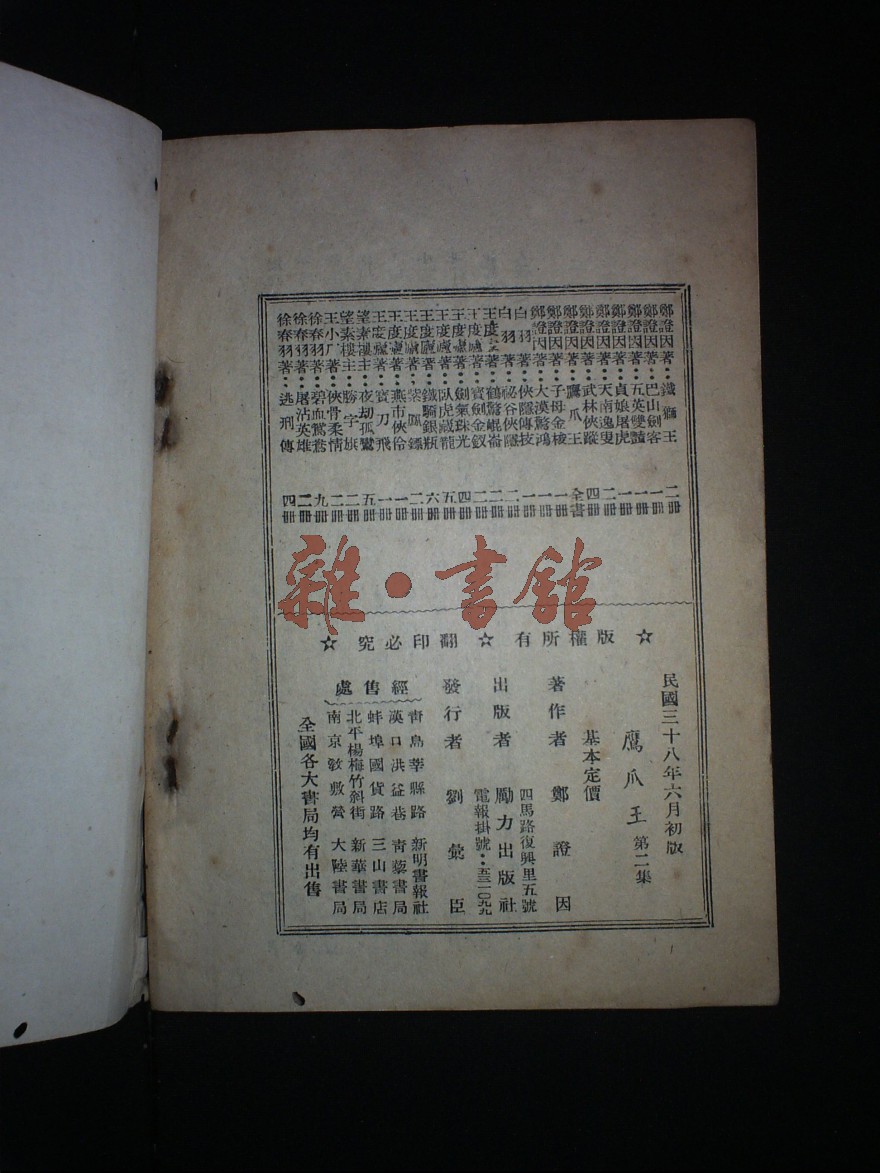 鄭證因著：鐵獅王 二冊
鄭證因著：巴山劍客 一冊
鄭證因著：五英雙豔 一冊
鄭證因著：貞娘屠虎 一冊
鄭證因著：天南逸叟 二冊
鄭證因著：武林俠蹤 四冊
鄭證因著：鷹爪王 全書
鄭證因著：子母金梭 一冊
鄭證因著：大漠驚鴻 一冊
白羽著：俠隱傳技 一冊
白羽著：祕谷俠隱 二冊
王度廬著：鶴驚崐崙
王度廬著：寶劍金釵
王度廬著：劍氣珠光 四冊
王度廬著：臥虎藏龍 五冊
王度廬著：鐵騎銀瓶 六冊
王度廬著：紫鳳鏢 二冊
王度廬著：燕市俠伶 一冊
王度廬著：寶刀飛 一冊
望素樓主：夜劫孤鸞 五冊
望素樓主：勝字旗 二冊
王小厂著：俠骨柔情 二冊
徐春羽著：碧血鴛鴦 九冊
徐春羽著：屠沽英雄 二冊
徐春羽著：逃刑傳 四冊
雜·書館
☆ 版權所有 ☆ 翻印必究 ☆
民國三十八年六月初版
鷹爪王 第二集
基本定價
著作者 鄭證因
四馬路復興里五號
出版者 勵力出版社
電報掛號：五三一〇九九
發行者 劉彙臣
經售處
青島莘縣路 新明書報社
漢口洪益巷 青藜書局
蚌埠國貨路 三山書店
北平楊梅竹斜街 新華書局
南京敎敷營 大陸書局
全國各大書局均有出售